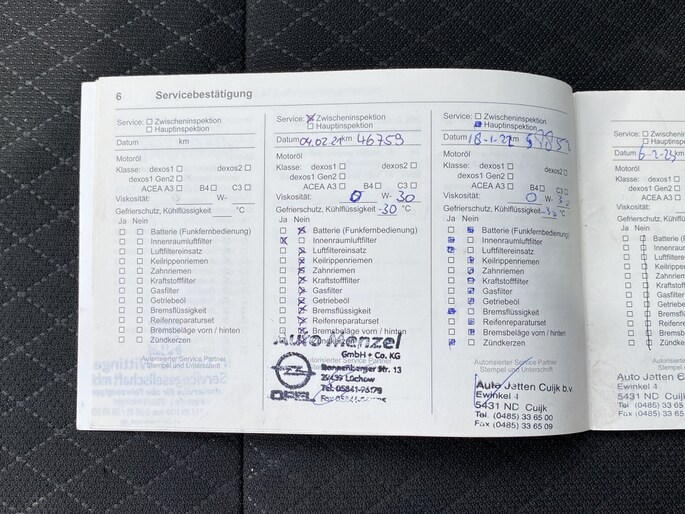 6 Servicebestätigung
Service: Zwischeninspektion
Hauptinspektion
Datum km
Motoröl
Klasse: dexos1 dexos2
dexos1 Gen2
ACEA A3 B4 C3
Viskosität: W-
Gefrierschutz, Kühlflüssigkeit °C
Ja Nein
Batterie (Funkfernbedienung)
Innenraumluftfilter
Luftfiltereinsatz
Keilrippenriemen
Zahnriemen
Kraftstofffilter
Gasfilter
Getriebeöl
Bremsflüssigkeit
Reifenreparaturset
Bremsbeläge vorn / hinten
Zündkerzen
Autorisierter Service Partner
Stempel und Unterschrift
Service: Zwischeninspektion
Hauptinspektion
Datum 04.02.21 km 46759
Motoröl
Klasse: dexos1 dexos2
dexos1 Gen2
ACEA A3 B4 C3
Viskosität: 0 W- 30
Gefrierschutz, Kühlflüssigkeit -30 °C
Ja Nein
Batterie (Funkfernbedienung)
Innenraumluftfilter
Luftfiltereinsatz
Keilrippenriemen
Zahnriemen
Kraftstofffilter
Gasfilter
Getriebeöl
Bremsflüssigkeit
Reifenreparaturset
Bremsbeläge vorn / hinten
Auto Menzel
GmbH + Co. KG
Dannenberger Str. 13
29439 Lüchow
OPEL
Service: Zwischeninspektion
Hauptinspektion
Datum 18-1-22 km
Motoröl
Klasse: dexos1 dexos2
dexos1 Gen2
ACEA A3 B4 C3
Viskosität: 0 W-
Gefrierschutz, Kühlflüssigkeit °C
Ja Nein
Batterie (Funkfernbedienung)
Innenraumluftfilter
Luftfiltereinsatz
Keilrippenriemen
Zahnriemen
Kraftstofffilter
Gasfilter
Getriebeöl
Bremsflüssigkeit
Reifenreparaturset
Bremsbeläge vorn / hinten
Zündkerzen
Autorisierter Service Partner
Stempel und Unterschrift
Auto Jatten Cuijk b.v.
Ewinkel 4
5431 ND Cuijk
Tel. (0485) 33 65 00
Fax (0485) 33 65 09
Service:
Datum 6-2-23 km
Motoröl
Klasse:
Viskosität:
Gefrierschutz,
Ja Nein
Auto Jatten
Ewinkel 4
5431 ND Cuijk
Tel. (0485) 33 65
Fax (0485) 33 65